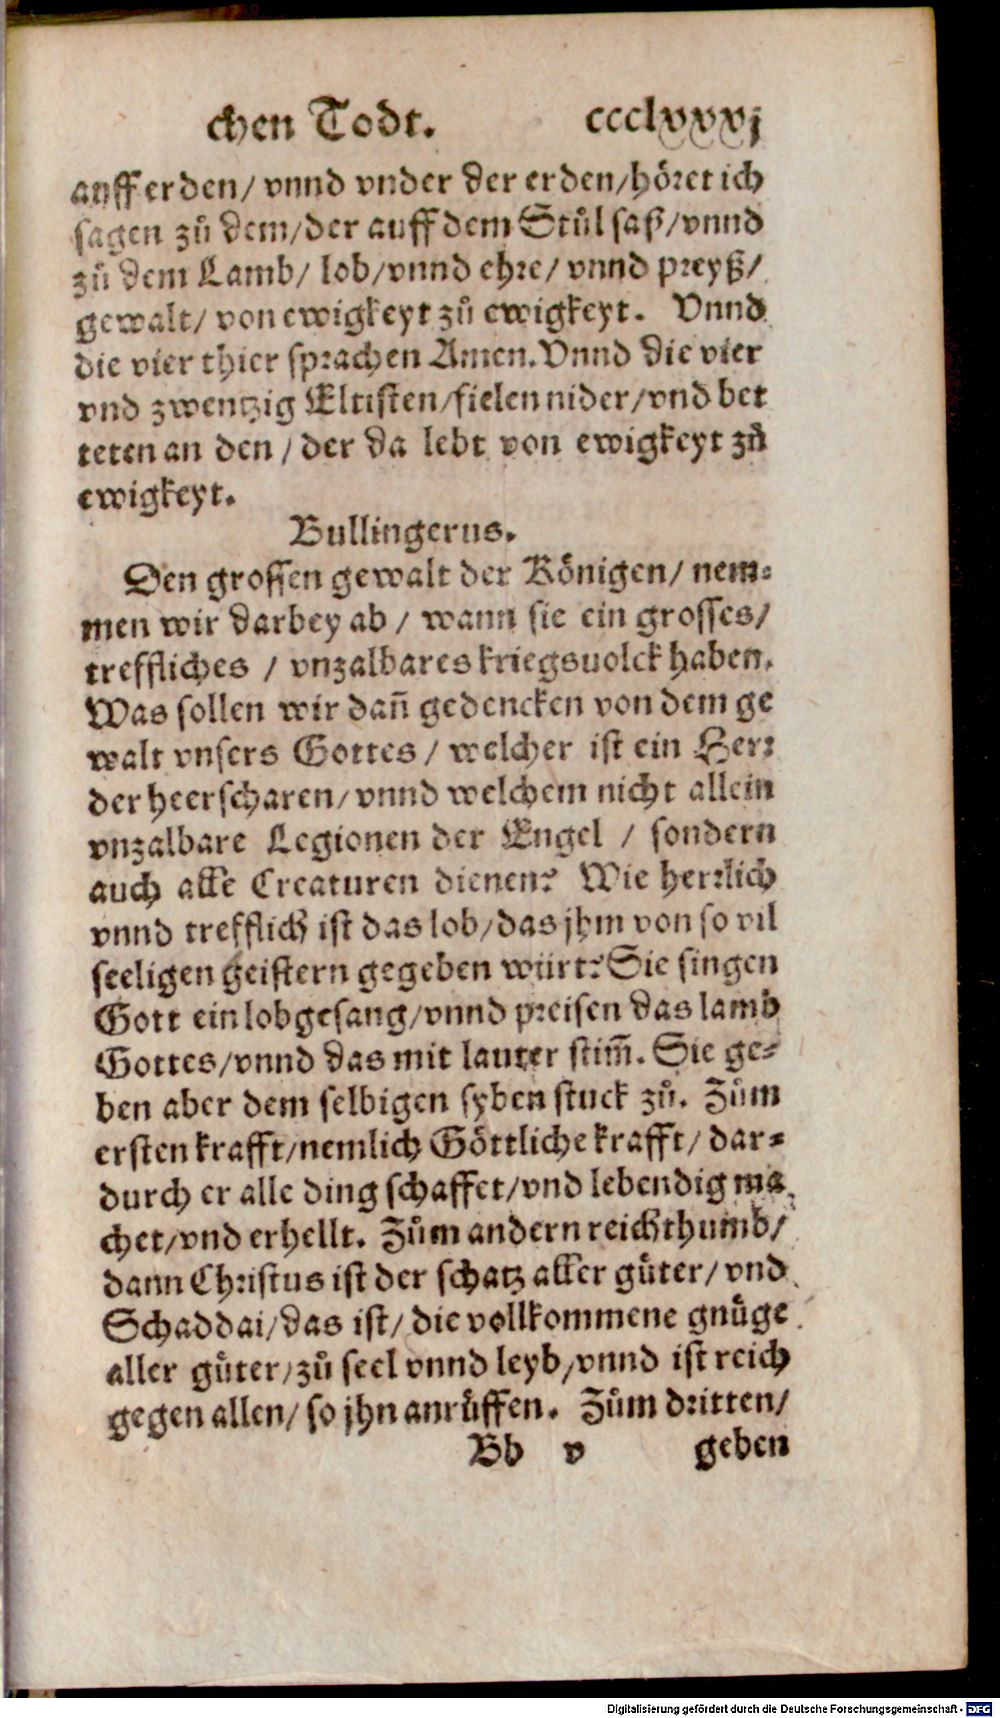 chen Todt. ccclxxxj
auff erden/ vnnd vnder der erden/ höret ich
sagen zů dem/ der auff dem Stůl saß/ vnnd
zů dem Lamb/ lob/ vnnd ehre/ vnnd preyß/
gewalt/ von ewigkeyt zů ewigkeyt. Vnnd
die vier thier sprachen Amen. Vnnd die vier
vnd zwentzig Eltisten/ fielen nider/ vnd bet
teten an den/ der da lebt von ewigkeyt zů
ewigkeyt.
Bullingerus.
Den grossen gewalt der Königen/ nem-
men wir darbey ab/ wann sie ein grosses/
treffliches/ vnzalbares kriegsuolck haben.
Was sollen wir dañ gedencken von dem ge
walt vnsers Gottes/ welcher ist ein Herr
der heerscharen/ vnnd welchem nicht allein
vnzalbare Legionen der Engel/ sondern
auch alle Creaturen dienen? Wie herrlich
vnnd trefflich ist das lob/ das jhm von so vil
seeligen geistern gegeben würt? Sie singen
Gott ein lobgesang/ vnnd preisen das lamb
Gottes/ vnnd das mit lauter stim̃. Sie ge-
ben aber dem selbigen syben stuck zů. Zům
ersten krafft/ nemlich Göttliche krafft/ dar-
durch er alle ding schaffet/ vnd lebendig ma
chet/ vnd erhellt. Zům andern reichthumb/
dann Christus ist der schatz aller güter/ vnd
Schaddai/ das ist/ die vollkommene gnüge
aller güter/ zů seel vnnd leyb/ vnnd ist reich
gegen allen/ so jhn anrüffen. Zům dritten/
Bb v geben
Digitalisierung gefördert durch die Deutsche Forschungsgemeinschaft - DFG